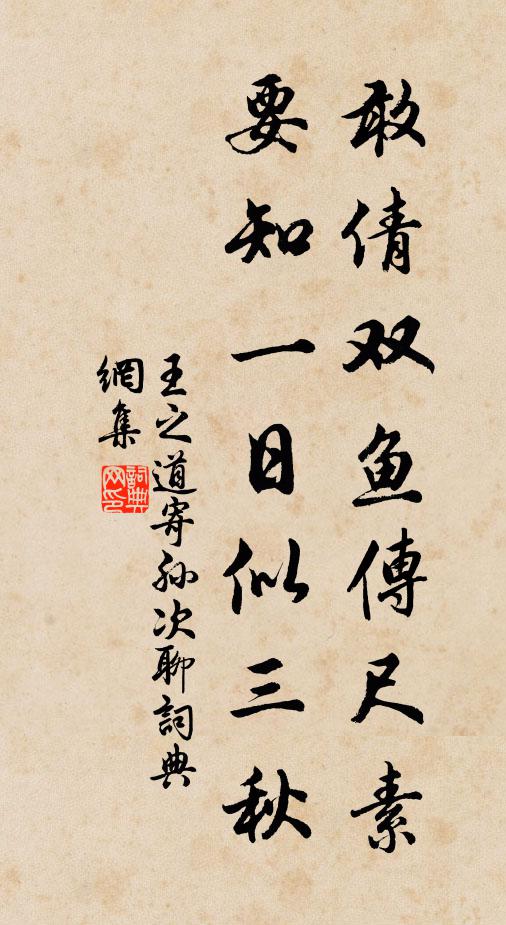 敢倩双鱼傳尺素
要知一日似三秋
王之道寄孙次聊詞典
網集
詞典
网印